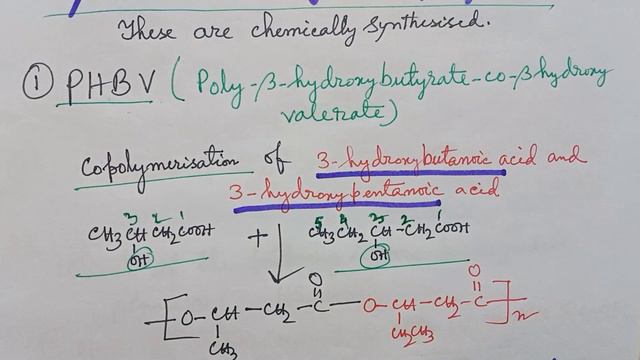 These are chemically synthesised.
① PHBV ( Poly-β-hydroxybutyrate-co-βhydroxy
valerate)
Copolymerisation of 3-hydroxybutanoic acid and
3-hydroxypentanoic acid
3 2 1 5 4 3 2 1
CH3CH CH2COOH + CH3CH2 CH-CH2COOH
OH OH
O O
[O-CH-CH2-C-O-CH-CH2-C]n
CH3 CH2CH3